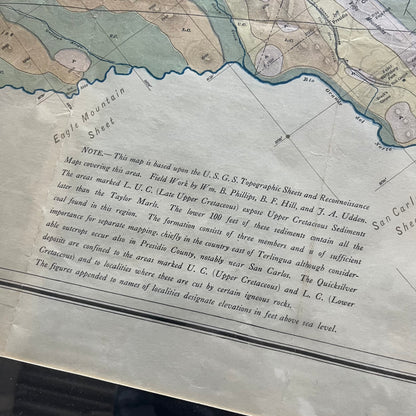 L.C.
U.C.
L.C.
L.C.
Rio Grande del Norte
Eagle Mountain
Sheet
San Carl
Sheet
NOTE.—This map is based upon the U.S.G.S. Topographic Sheets and Reconnoissance
Maps covering this area. Field Work by Wm. B. Phillips, B. F. Hill, and J. A. Udden.
The areas marked L. U. C. (Late Upper Cretaceous) expose Upper Cretaceous Sediments
later than the Taylor Marls. The lower 100 feet of these sediments contain all the
coal found in this region. The formation consists of three members and is of sufficient
importance for separate mapping, chiefly in the country east of Terlingua although consider-
able outcrops occur also in Presidio County, notably near San Carlos. The Quicksilver
deposits are confined to the areas marked U. C. (Upper Cretaceous) and L. C. (Lower
Cretaceous) and to localities where these are cut by certain igneous rocks.
The figures appended to names of localities designate elevations in feet above sea level.